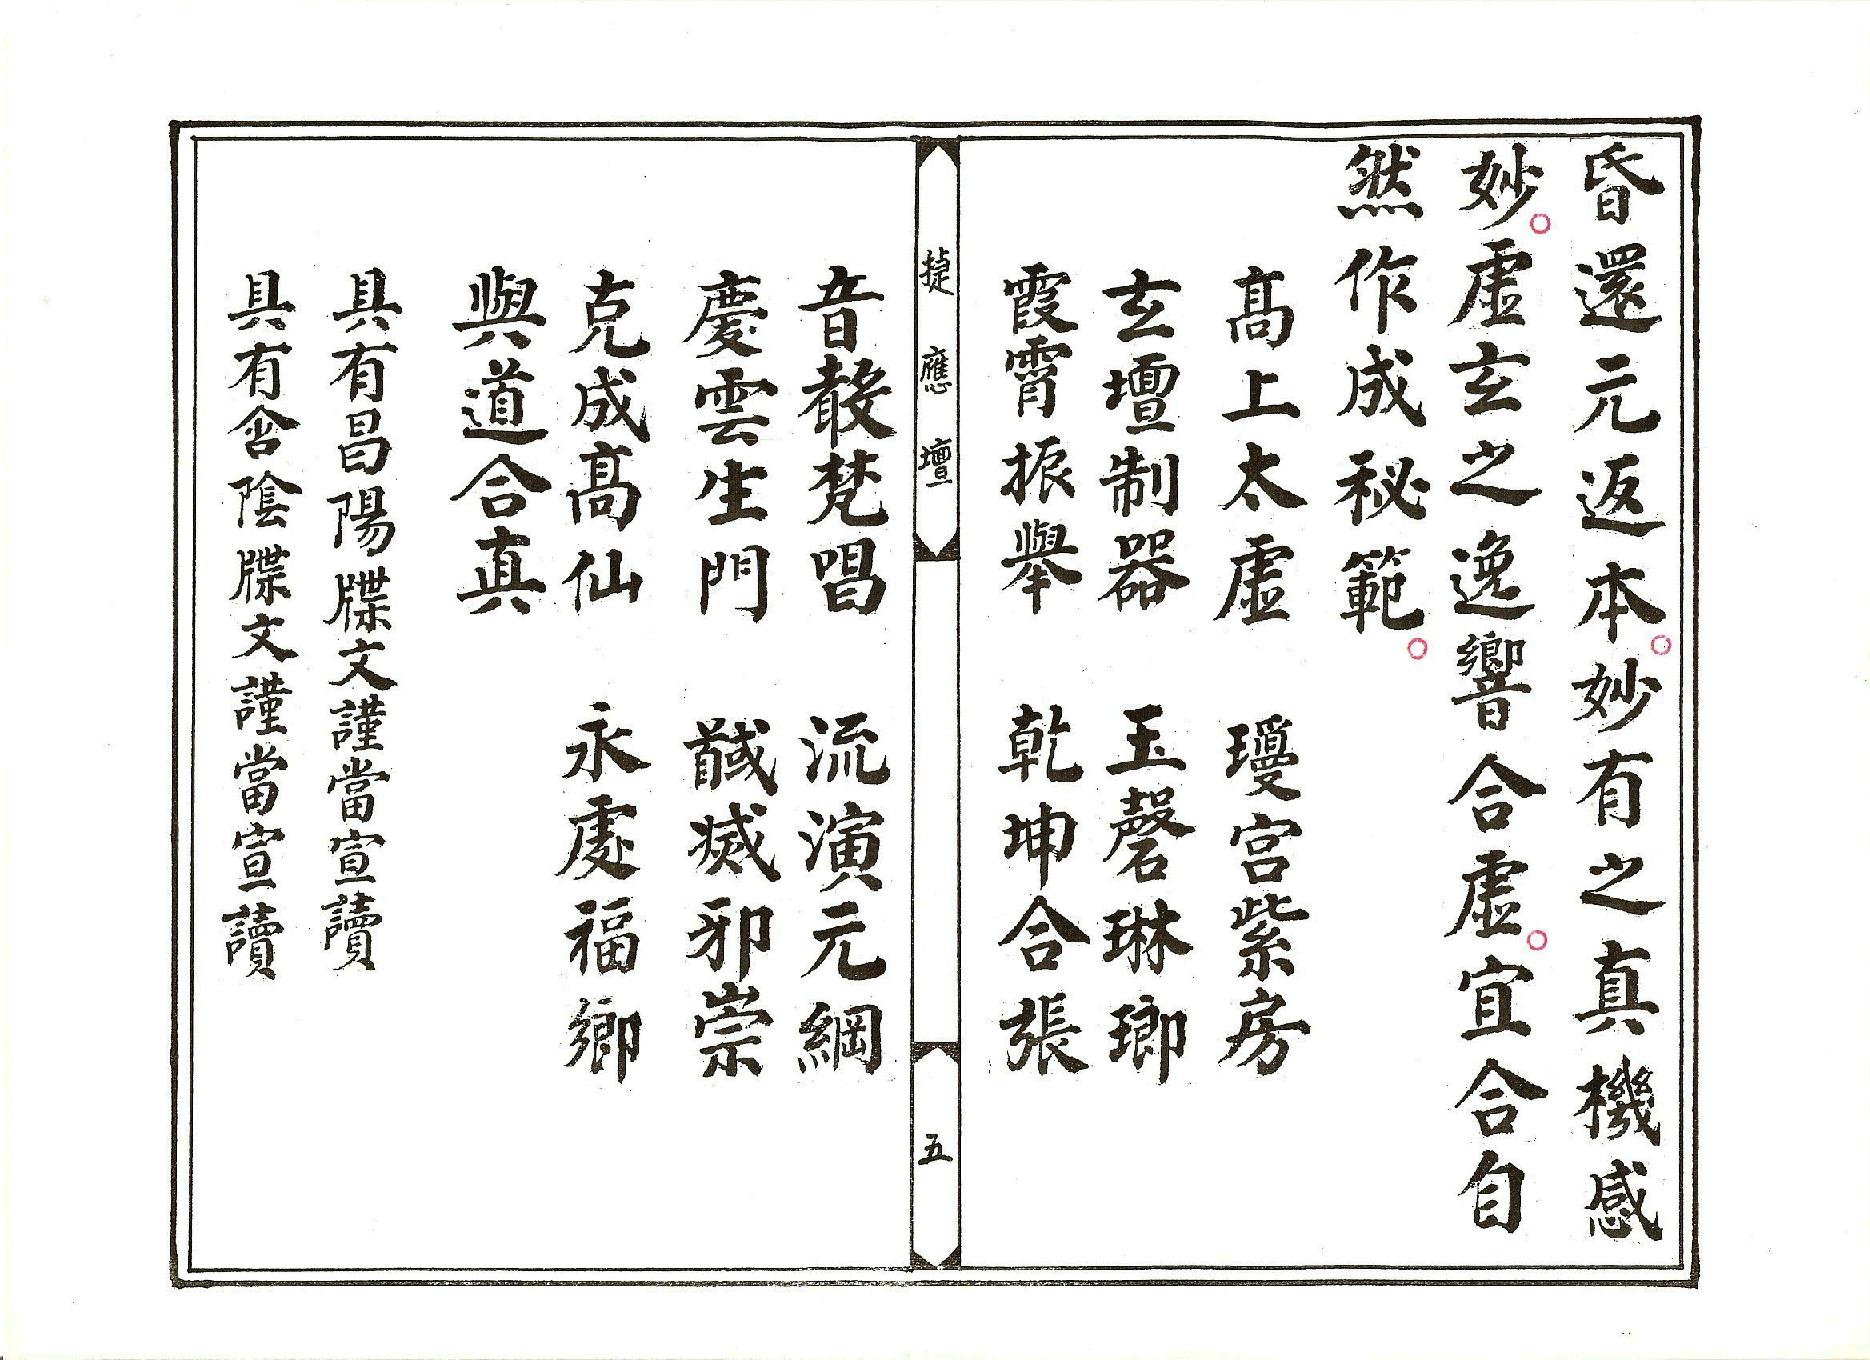 昏還元返本。妙有之真機感
妙。虛玄之逸響合虛。宜合自
然作成秘範。
髙上太虛　瓊宮紫房
玄壇制器　玉磬琳瑯
霞霄振舉　乾坤合張
捷應壇
五
音梵唱　流演元綱
慶雲生門　馘滅邪崇
克成髙仙　永處福鄉
與道合真
具有昌陽牒文謹當宣讀
具有含陰牒文謹當宣讀